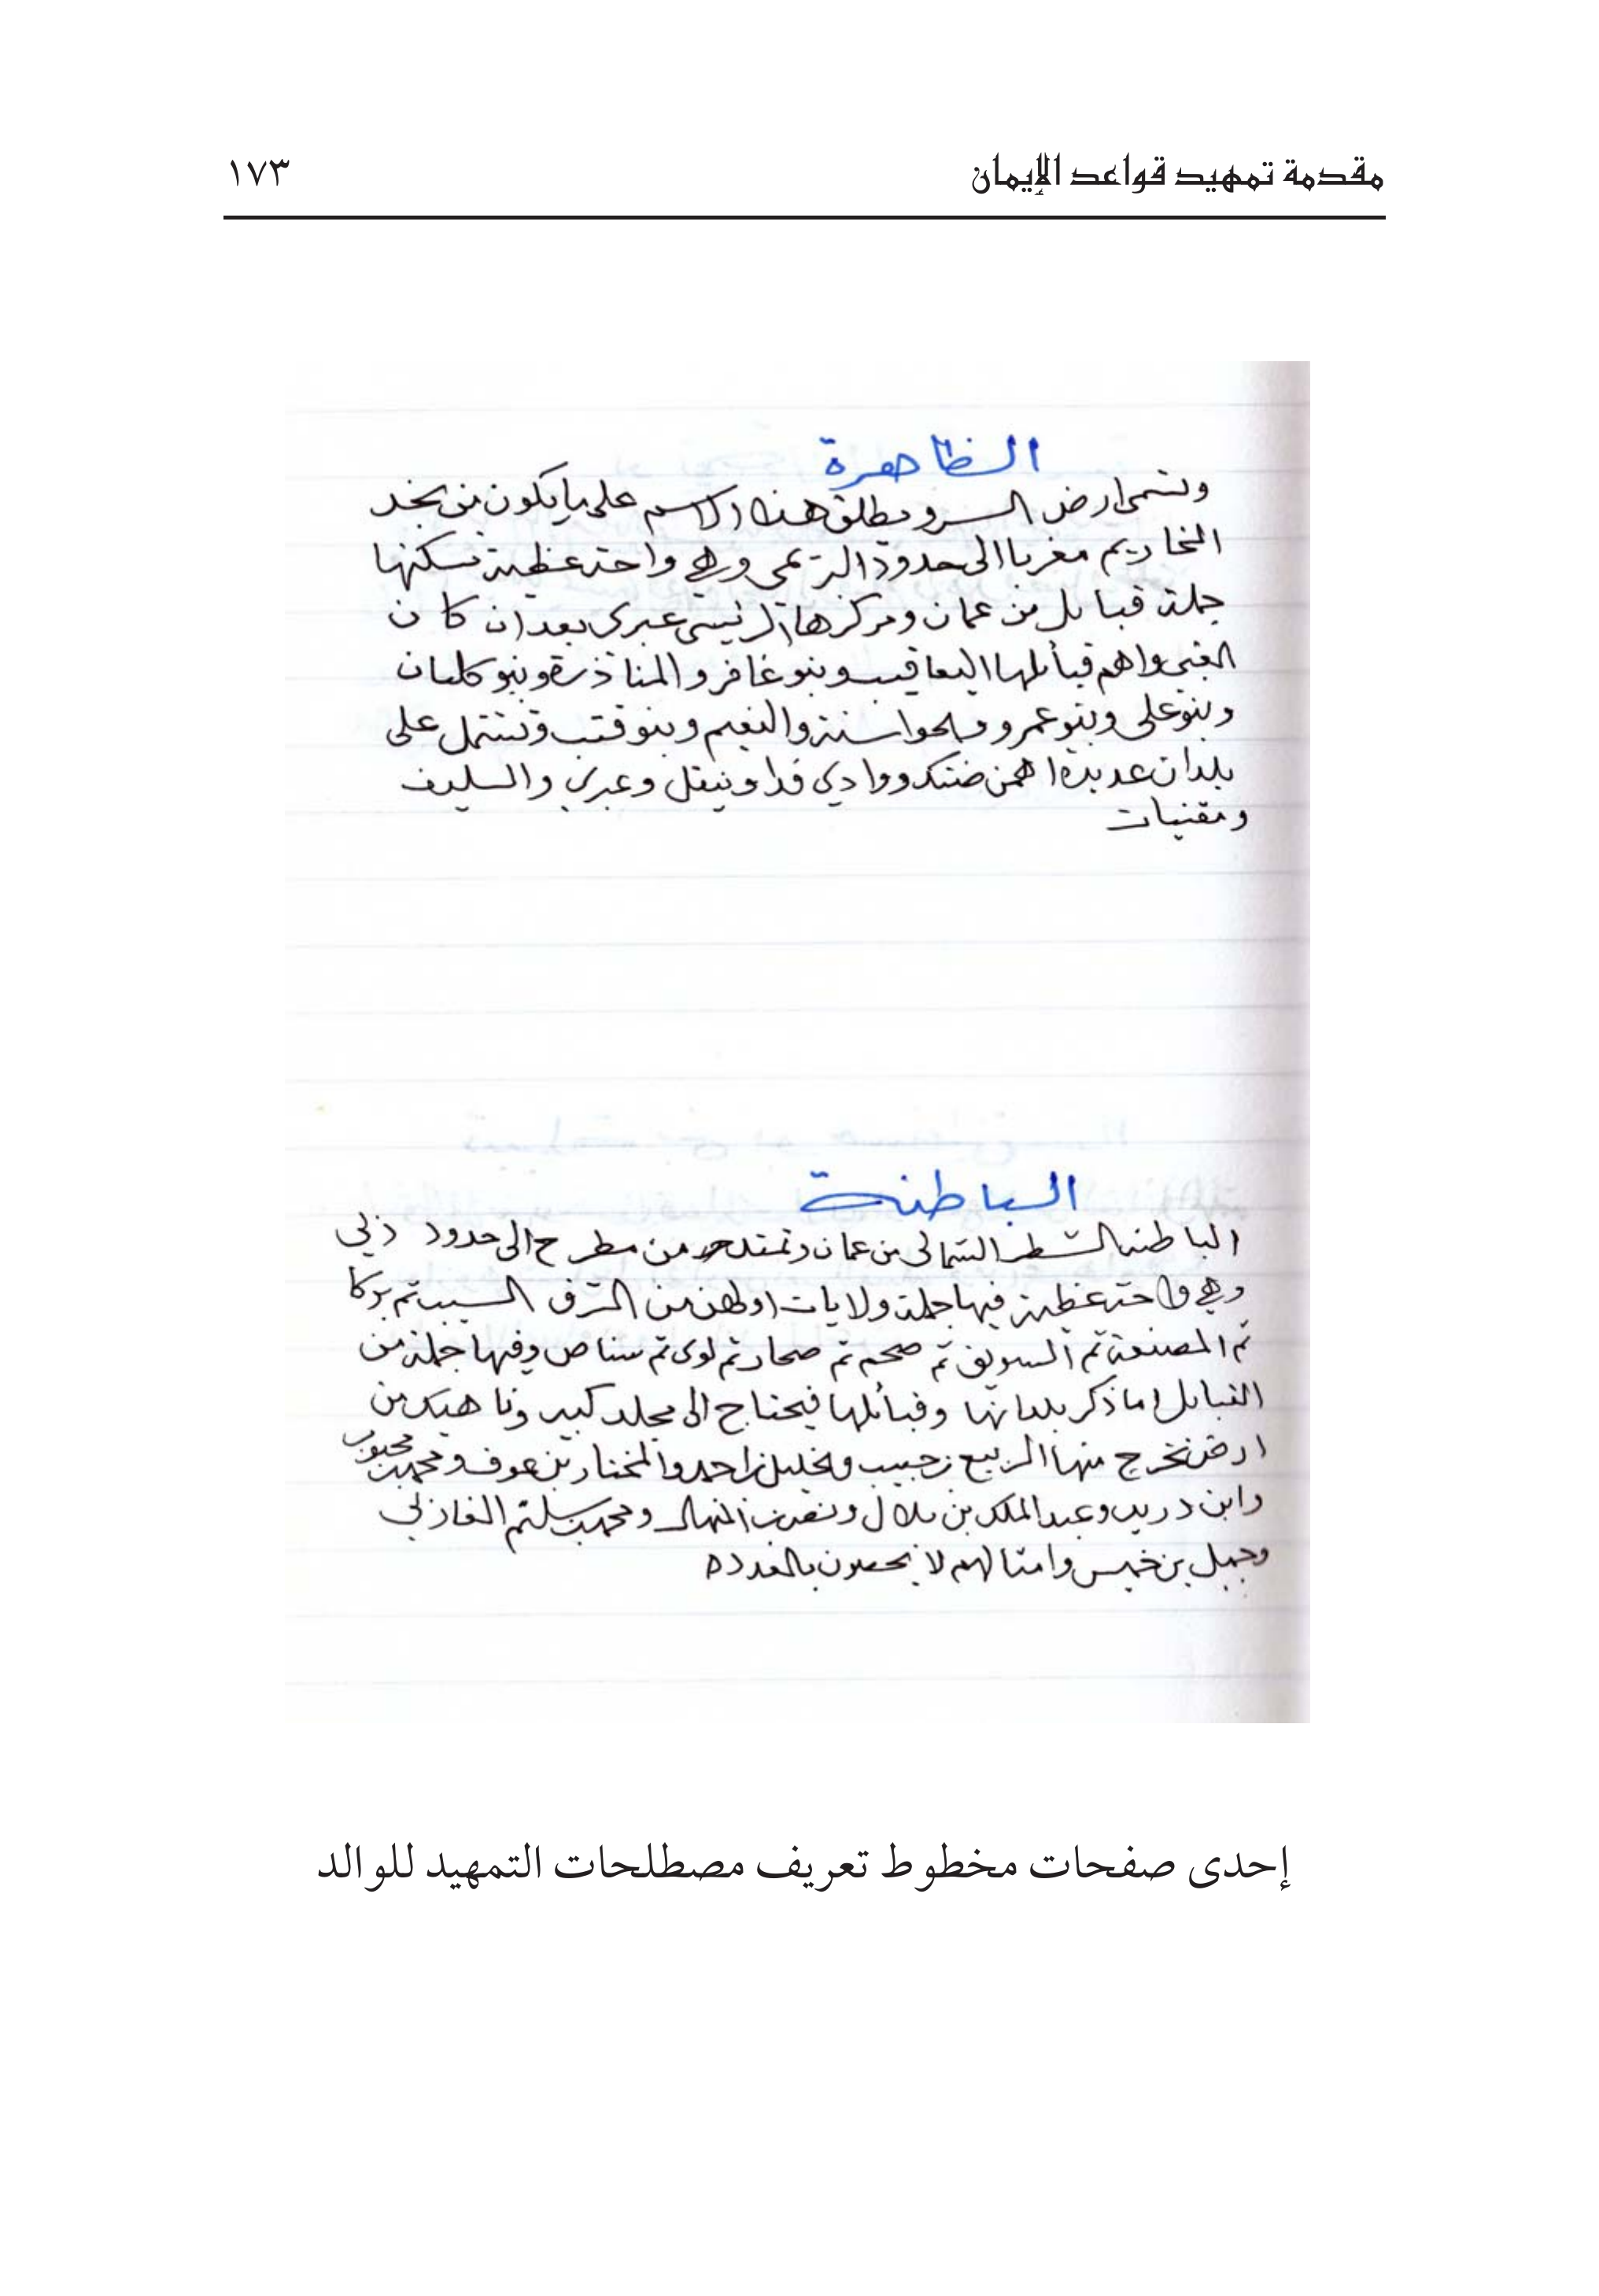 مقدمة تمهيد قواعد الإيمان
١٧٣
الظاهرة
وتسمى ارض السر ويطلق هذا الاسم على ما يكون من نجد
المخاريم مغربا الى حدود وهي واحة عظيمة تسكنها
جملة قبايل من عمان ومركزها الرئيسي عبري بعد ان كان
الغبي واهم قبائلها اليعاقيب وبنو غافر والمناذرة وبنو كلبان
وبنو علي وبنو عمرو والحواسنة والنعيم وبنو قتب وتشتمل على
بلدان عديدة اهمهن ضنك ووادي فدا وينقل وعبري والسليف
ومقنيات
الباطنة
الباطنة الشطر الشمالي من عمان وتمتد من مطرح الى حدود دبي
وهي واحة عظيمة فيها جملة ولايات اولهن من الشرق السيب ثم بركا
ثم المصنعة ثم السويق ثم صحم ثم صحار ثم لوى ثم شناص وفيها جملة من
القبايل اما ذكر بلدانها وقبائلها فيحتاج الى مجلد كبير وناهيك من
ارض تخرج منها الربيع بن حبيب والخليل بن احمد والمختار بن عوف ومحمد بن محبوب
وابن دريد وعبد الملك بن بلال ونصر بن المنهال ومحمد بن سليم الغاربي
وجميل بن خميس وامثالهم لا يحصون بالعدد ه
إحدى صفحات مخطوط تعريف مصطلحات التمهيد للوالد